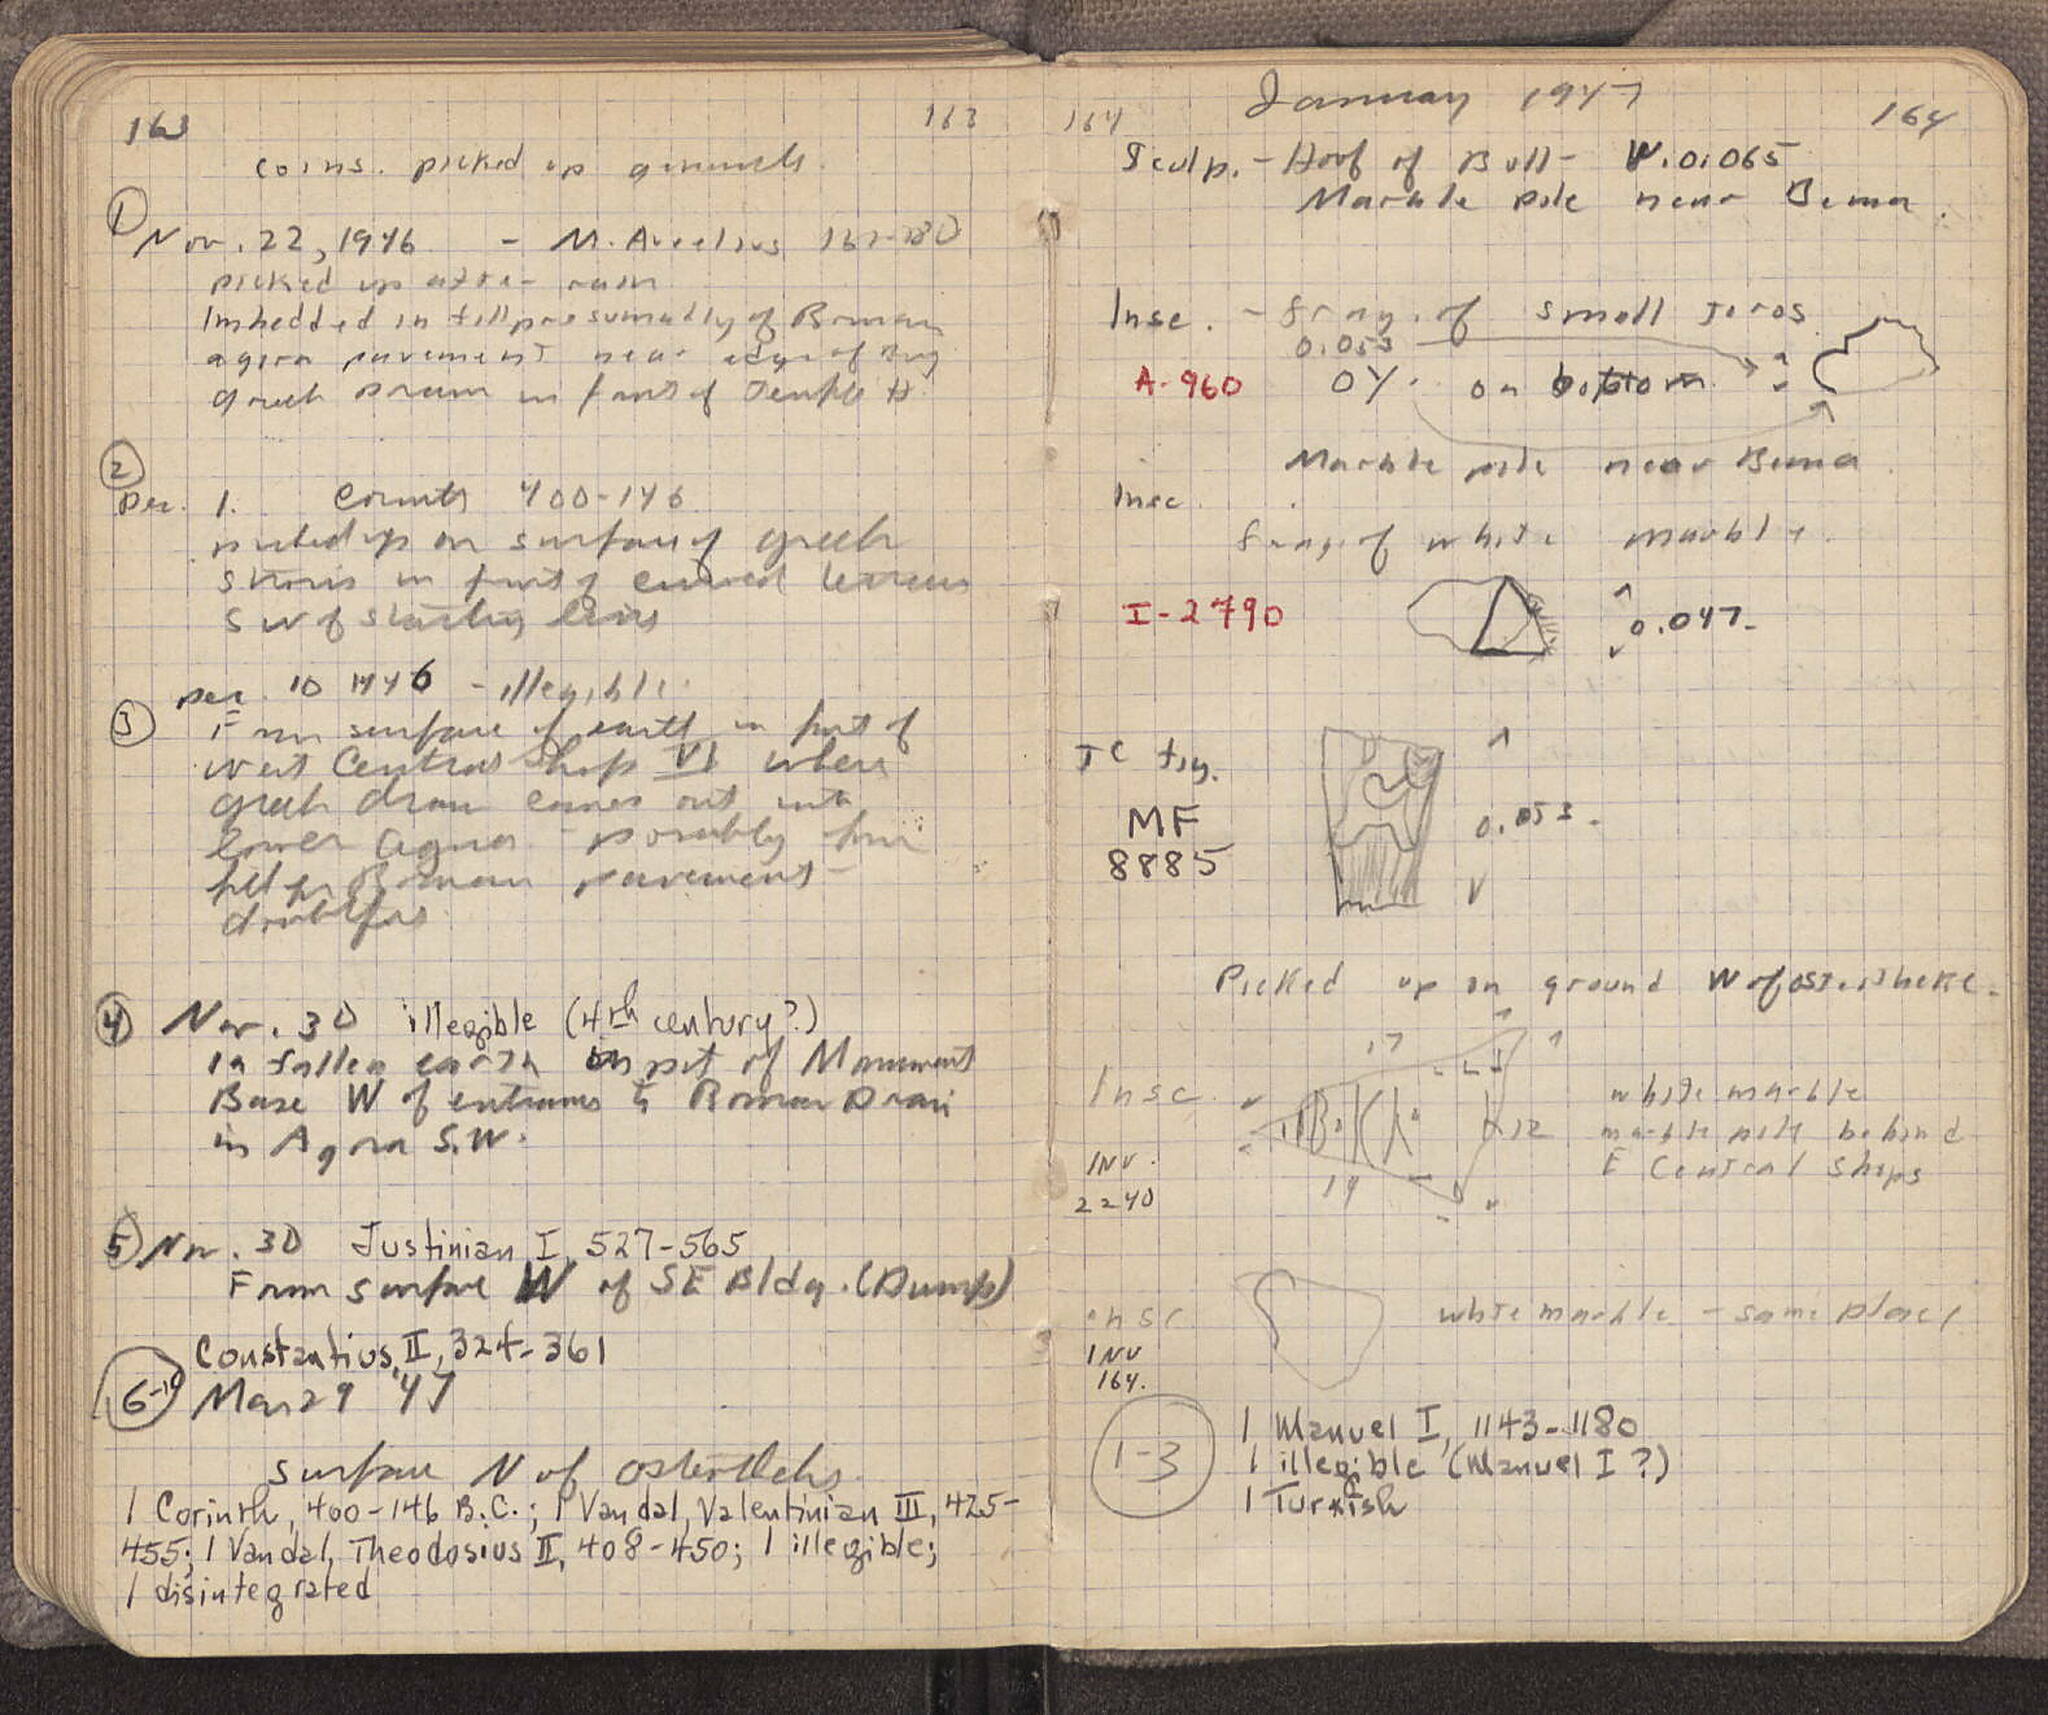 163 163
coins. picked up
①
Nov. 22, 1946 - M. Aurelius 161-180
picked up after rain
Imbedded in fill presumably of Roman
agora pavement near edge of big
greek Drain in front of Temple H
②
Dec. 1. Corinth 400-146
picked up on surface of greek
stones in front of curved terrace
SW of starting lines
Dec. 10 1946 - illegible
③ From surface of earth in front of
West Central Shop VI where
greek drain comes out into
lower agora - possibly from
fill for Roman pavement -
doubtful
④ Nov. 30 illegible (4th century?)
In fallen earth in pit of Monument
Base W of entrance to Roman Drain
in Agora S.W.
⑤ Nov. 30 Justinian I, 527-565
From surface W of SE Bldg. (Dump)
Constantius II, 324-361
6-10 Mar 29 '47
surface N of
1 Corinth, 400-146 B.C.; 1 Vandal, Valentinian III, 425-
455; 1 Vandal, Theodosius II, 408-450; 1 illegible;
1 disintegrated
164 January 1947 164
Sculp. - Hoof of Bull - W. 0.065
Marble pile near Bema.
Insc. - Frag. of small
0.053
A-960 on bottom
Marble pile near Bema
Insc.
Frag. of white marble.
I-2790 0.047
TC frg.
MF 0.053
8885
Picked up on ground W of
17
Insc. white marble
12 marble pile behind
E Central Shops
INV. 19
2240
Insc. white marble - same place
INV
164.
1-3
1 Manuel I, 1143-1180
1 illegible (Manuel I?)
1 Turkish